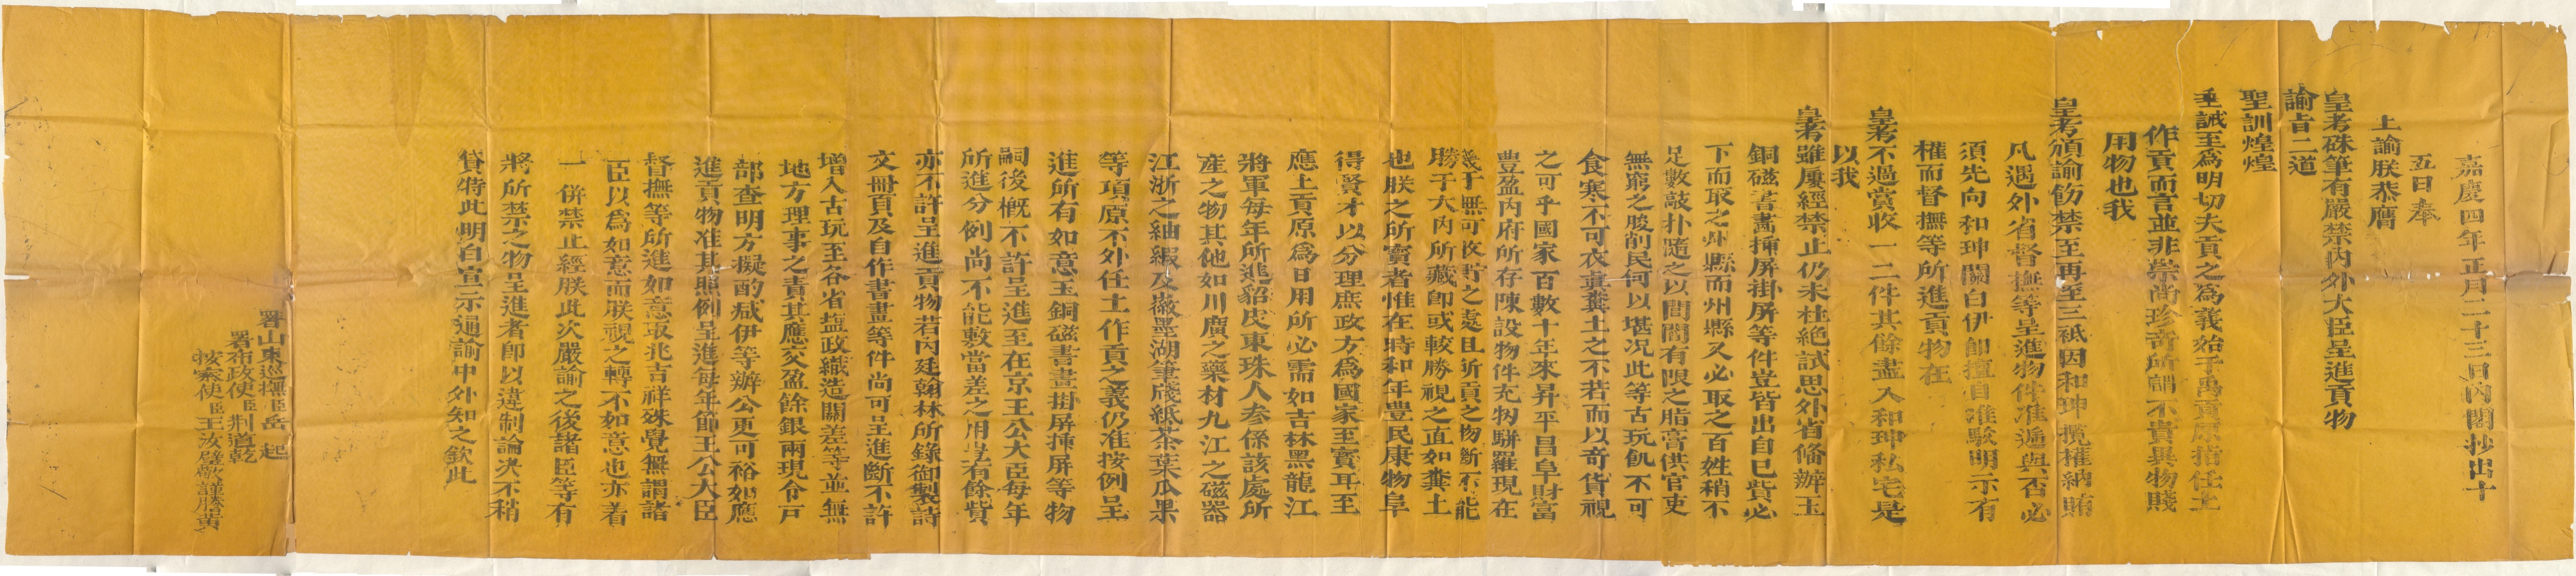 嘉慶四年正月二十三日內閣抄出十
五日奉
上諭朕恭膺
皇考硃筆有嚴禁內外大臣呈進貢物
諭旨二道
聖訓煌煌
垂誡至為明切夫貢之為義始于禹貢原指任土
作貢而言並非崇尚珍奇所謂不貴異物賤
用物也我
皇考頒諭飭禁至再至三祗因和珅攬權納賄
凡遇外省督撫等呈進物件准遞與否必
須先向和珅關白伊即擅自准駁明示有
權而督撫等所進貢物在
皇考不過賞收一二件其餘盡入和珅私宅是
以我
皇考雖屢經禁止仍未杜絕試思外省備辦玉
銅磁書畫揷屏掛屏等件豈皆出自己貲必
下而取之州縣而州縣又必取之百姓稍不
足數敲扑隨之以閭閻有限之脂膏供官吏
無窮之朘削民何以堪况此等古玩飢不可
食寒不可衣真糞土之不若而以奇貨視
之可乎國家百數十年來昇平昌阜財富
豐盈內府所存陳設物件充牣駢羅現在
幾于無可收貯之處且所貢之物斷不能
勝于大內所藏即或較勝視之直如糞土
也朕之所寶者惟在時和年豐民康物阜
得賢才以分理庶政方為國家至寶耳至
應上貢原為日用所必需如吉林黑龍江
將軍每年所進貂皮東珠人參係該處所
產之物其他如川廣之藥材九江之磁器
江浙之紬緞及徽墨湖筆牋紙茶葉瓜果
等項原不外任土作貢之義仍准按例呈
進所有如意玉銅磁書畫掛屏揷屏等物
嗣後概不許呈進至在京王公大臣每年
所進分例尚不能敷當差之用豈有餘貲
亦不許呈進貢物若內廷翰林所錄御製詩
文冊頁及自作書畫等件尚可呈進斷不許
增入古玩至各省塩政織造關差等並無
地方理事之責其應交盈餘銀兩現令戶
部查明方擬酌減伊等辦公更可裕如應
進貢物准其照例呈進每年節王公大臣
督撫等所進如意取兆吉祥殊覺無謂諸
臣以為如意而朕視之轉不如意也亦着
一併禁止經朕此次嚴諭之後諸臣等有
將所禁之物呈進者即以違制論决不稍
貸特此明白宣示通諭中外知之欽此
署山東巡撫臣岳起
署布政使臣荆道乾
按察使臣王汝璧敬謹謄黃